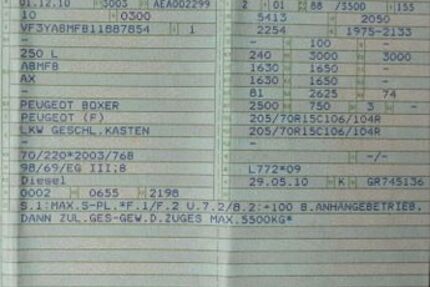 01.12.10 3003 AEA002299 2 01 88 /3500 155
10 0300 5413 2050
VF3YABMFB11887854 1 2254 1975-2133
- - 100 -
250 L 240 3000 3000
ABMFB 1630 1650 -
AX 1630 1650 -
- 81 2625 74
PEUGEOT BOXER 2500 750 3 -
PEUGEOT (F) 205/70R15C106/104R
LKW GESCHL.KASTEN 205/70R15C106/104R
-
70/220*2003/76B -/-
98/69/EG III;B L772*09
Diesel 29.05.10 K GR745136
0002 0655 2198
S.1:MAX.S-PL.*F.1/F.2 U.7.2/8.2:+100 B.ANHANGEBETRIEB,
DANN ZUL.GES-GEW.D.ZUGES MAX.5500KG*